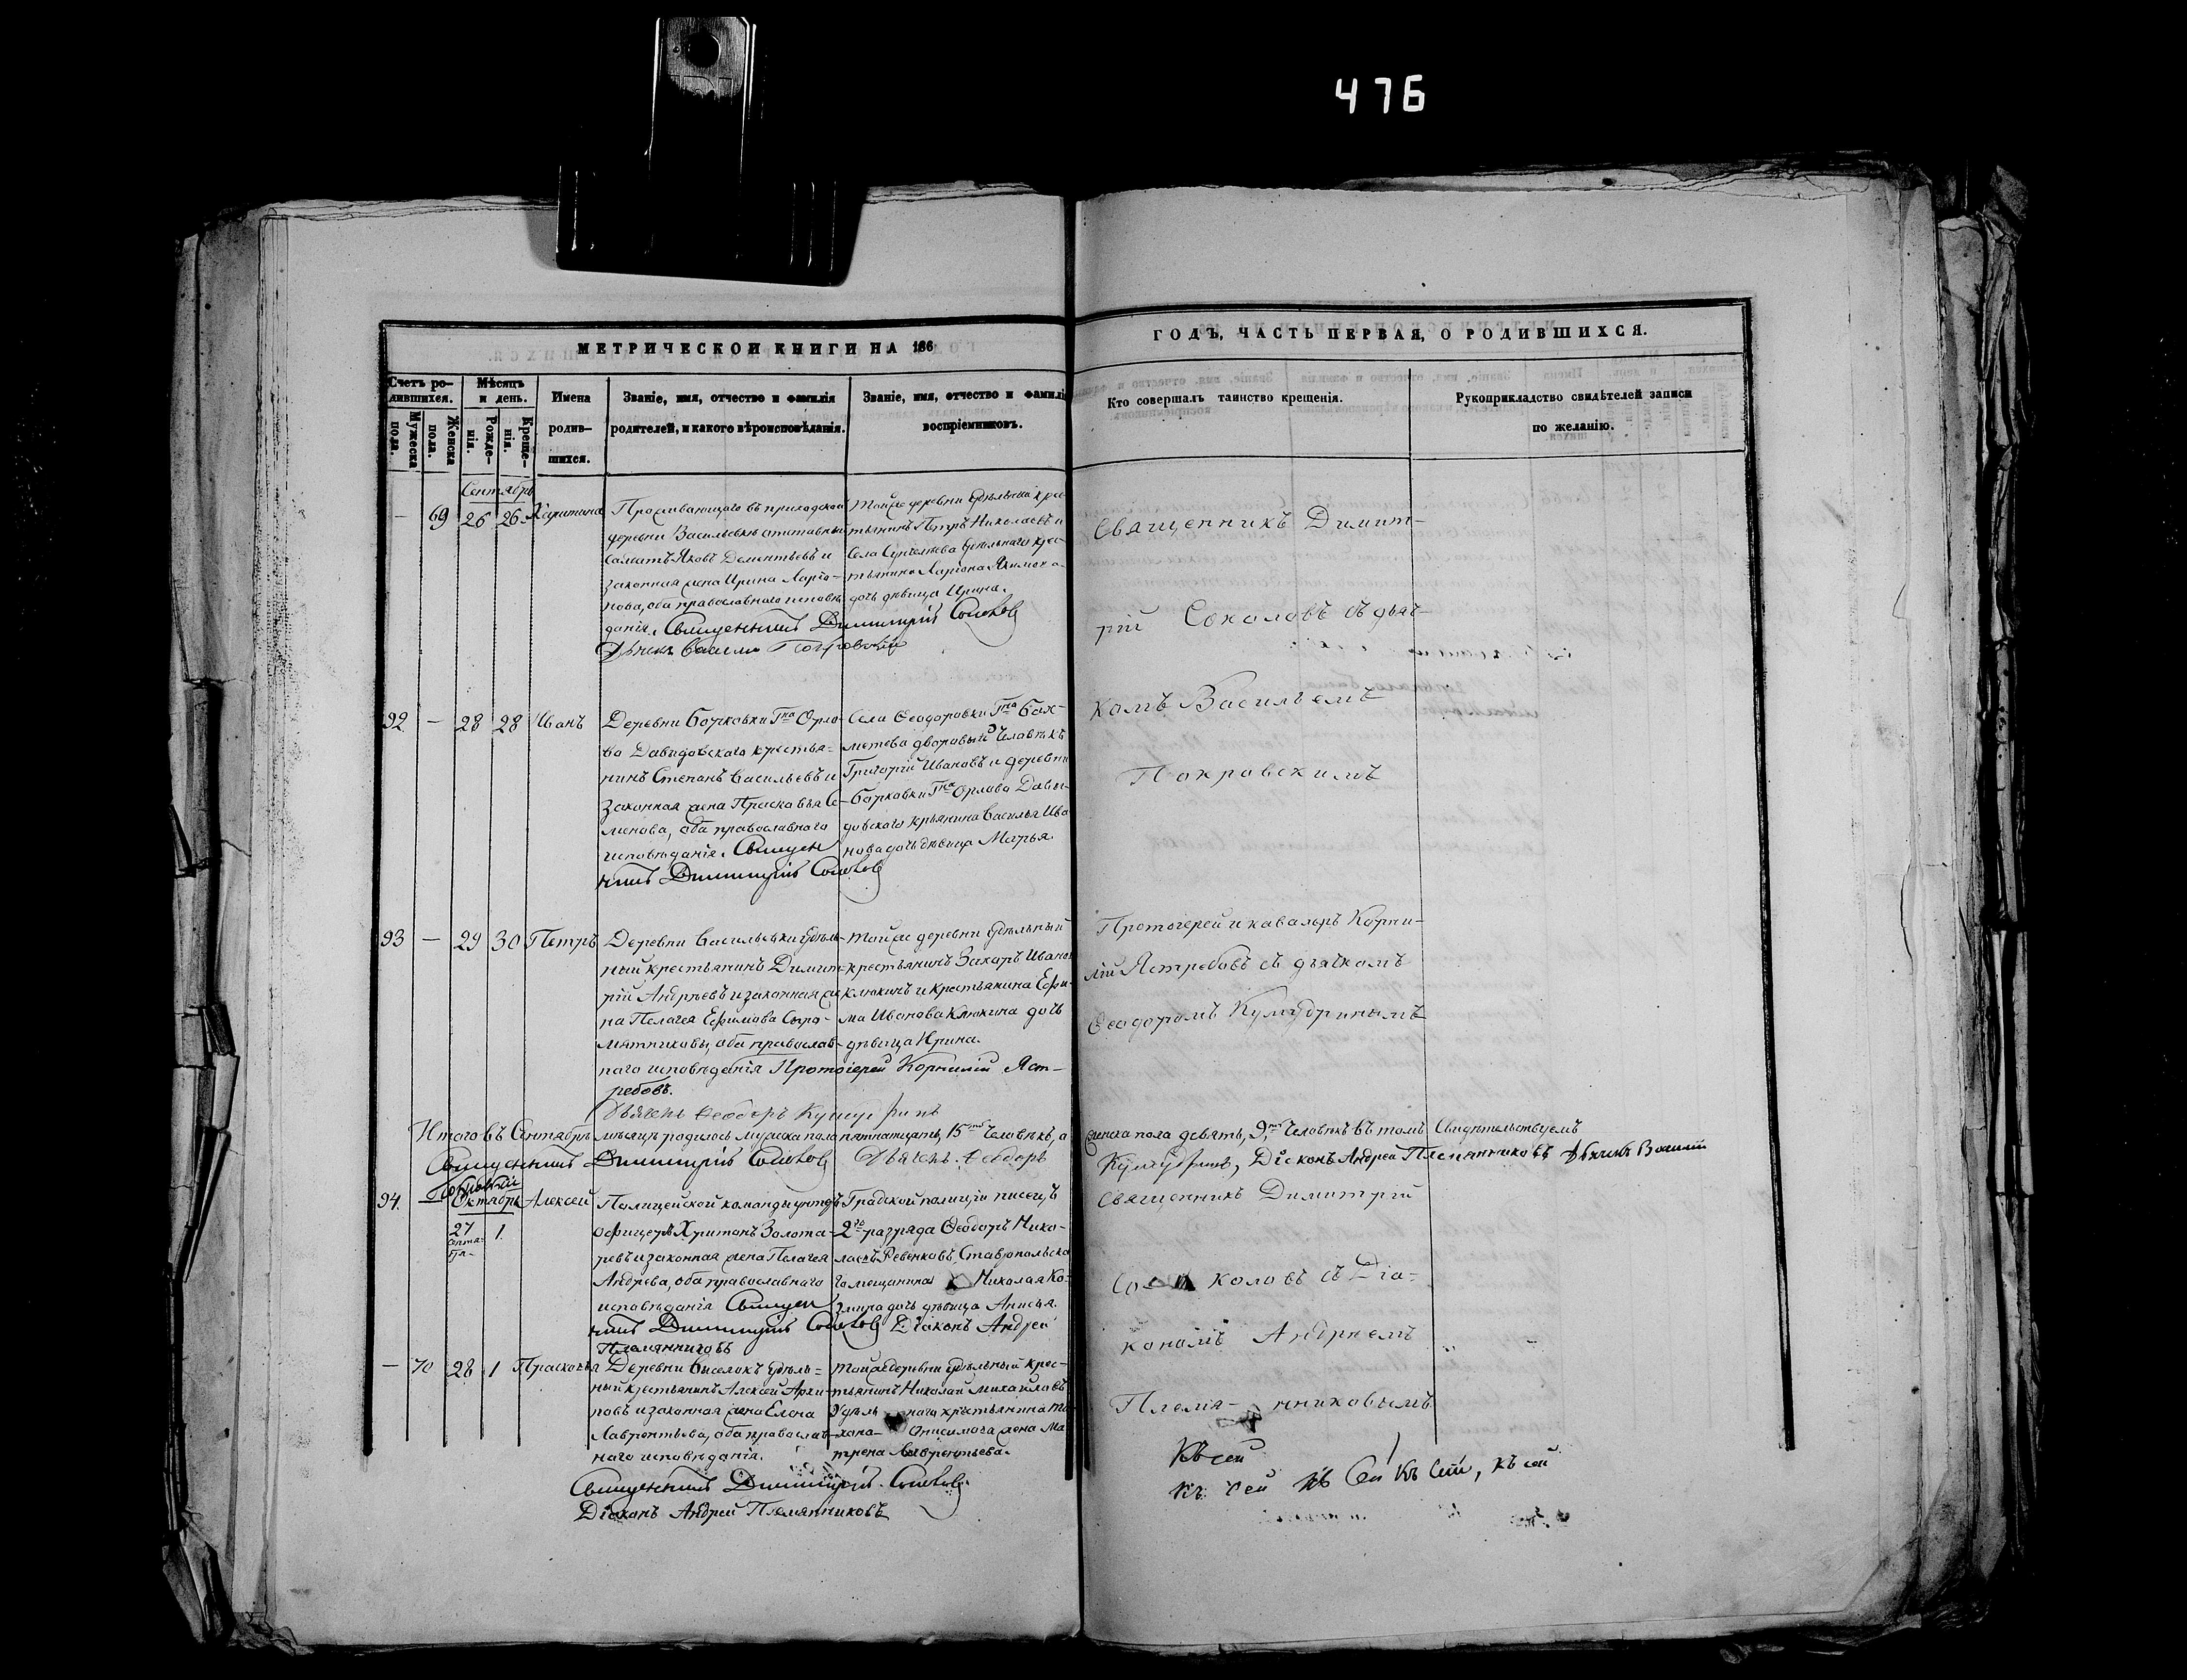 476
МЕТРИЧЕСКОЙ КНИГИ НА 186
ГОДЪ, ЧАСТЬ ПЕРВАЯ, О РОДИВШИХСЯ.
Счетъ ро-
дившихся.
Мужеска
пола.
Женска
пола.
Мѣсяцъ
и день.
Рожде-
нія.
Креще-
нія.
Имена
родив-
шихся.
Званіе, имя, отчество и фамилія
родителей, и какого вѣроисповѣданія.
Званіе, имя, отчество и фамилі
воспріемниковъ.
Кто совершалъ таинство крещенія.
Рукоприкладство свидѣтелей записи
по желанію.
Сентябрь
— 69 26 26 Харитина
Проживающаго въ приходской
деревни Васильевкѣ отставный
солдатъ Яковъ Дементьевъ и
законная жена Ирина Ларіо-
нова, оба православнаго исповѣ
данія. Священникъ Димитрій Соколовъ
Дьячекъ Василій Покровскій
тойже деревни удѣльный крес
тьянинъ Петръ Николаевъ и
села удѣльнаго крес-
тьянина Ларіона Якимова
дочь дѣвица Ирина.
Священникъ Димит-
рій Соколовъ съ дьяч-
комъ Васильемъ
Покровскимъ
92 — 28 28 Иванъ
Деревни Борковки Гна Орло
ва Давыдовскаго крестья-
нинъ Степанъ Васильевъ и
законная жена Прасковья Се
менова, оба православнаго
исповѣданія. Священ
никъ Димитрій Соколовъ
Села Ѳеодоровки Гна Бах-
метева дворовый человѣкъ
Григорій Ивановъ и деревни
Борковки Гна Орлова Давы-
довскаго крьянина Василья Ива
нова дочь дѣвица Марья.
93 — 29 30 Петръ
Деревни Васильевки удѣль-
ный крестьянинъ Димит-
рій Андрѣевъ и законная же
на Пелагея Ефимова Сыро-
мятниковы, оба православ-
наго исповѣданія Протоіерей Корнилій Яст-
ребовъ.
Дьячекъ Ѳеодоръ Кумудринъ
тойже деревни удѣльный
крестьянинъ Захаръ Ивано
Клюкинъ и крестьянина Ефи-
ма Иванова Клюкина дочь
дѣвица Ирина.
Протоіерей и кавалеръ Корни-
лій Ястребовъ съ дьячкомъ
Ѳеодоромъ Кумудринымъ
Итого въ Сентябрѣ мѣсяцѣ родилось мужеска пола пятнадцать, 15ть человѣкъ, а
женска пола девять, 9ть человѣкъ въ томъ Свидѣтельствуемъ
Священникъ Димитрій Соколовъ Дьячекъ Ѳеодоръ
Кумудринъ, Діаконъ Андрей Племянниковъ Дьячекъ Василій
Покровскій
Октябрь
94. 27 Сентября 1 Алексей
Полицейской команды унтеръ
офицеръ Харитонъ Золота-
ревъ и законная жена Пелагея
Андреева, оба православнаго
исповѣданія Священ
никъ Димитрій Соколовъ Діаконъ Андрей
Племянниковъ
Градской полиціи писецъ
2го разряда Ѳеодоръ Нико-
лаевъ Ревенковъ, Ставропольска
го мещанина Николая Ко-
змина дочь дѣвица Анисья.
Священникъ Димитрій
Соколовъ съ Діа-
кономъ Андрѣемъ
Племянниковымъ
— 70 28 1 Прасковья
Деревни Выселокъ удѣль-
ный крестьянинъ Алексей Архи-
повъ и законная жена Елена
Лаврентьева, оба православ-
наго исповѣданія.
тойже деревни удѣльный крес-
тьянинъ Николай Михайловъ
Удѣльнаго крестьянина
Онисимова жена Ма
трена Лаврентьева.
Священникъ Димитрій Соколовъ
Діаконъ Андрей Племянниковъ
Къ сей
Къ сей Къ Сей Къ Сей, къ сей